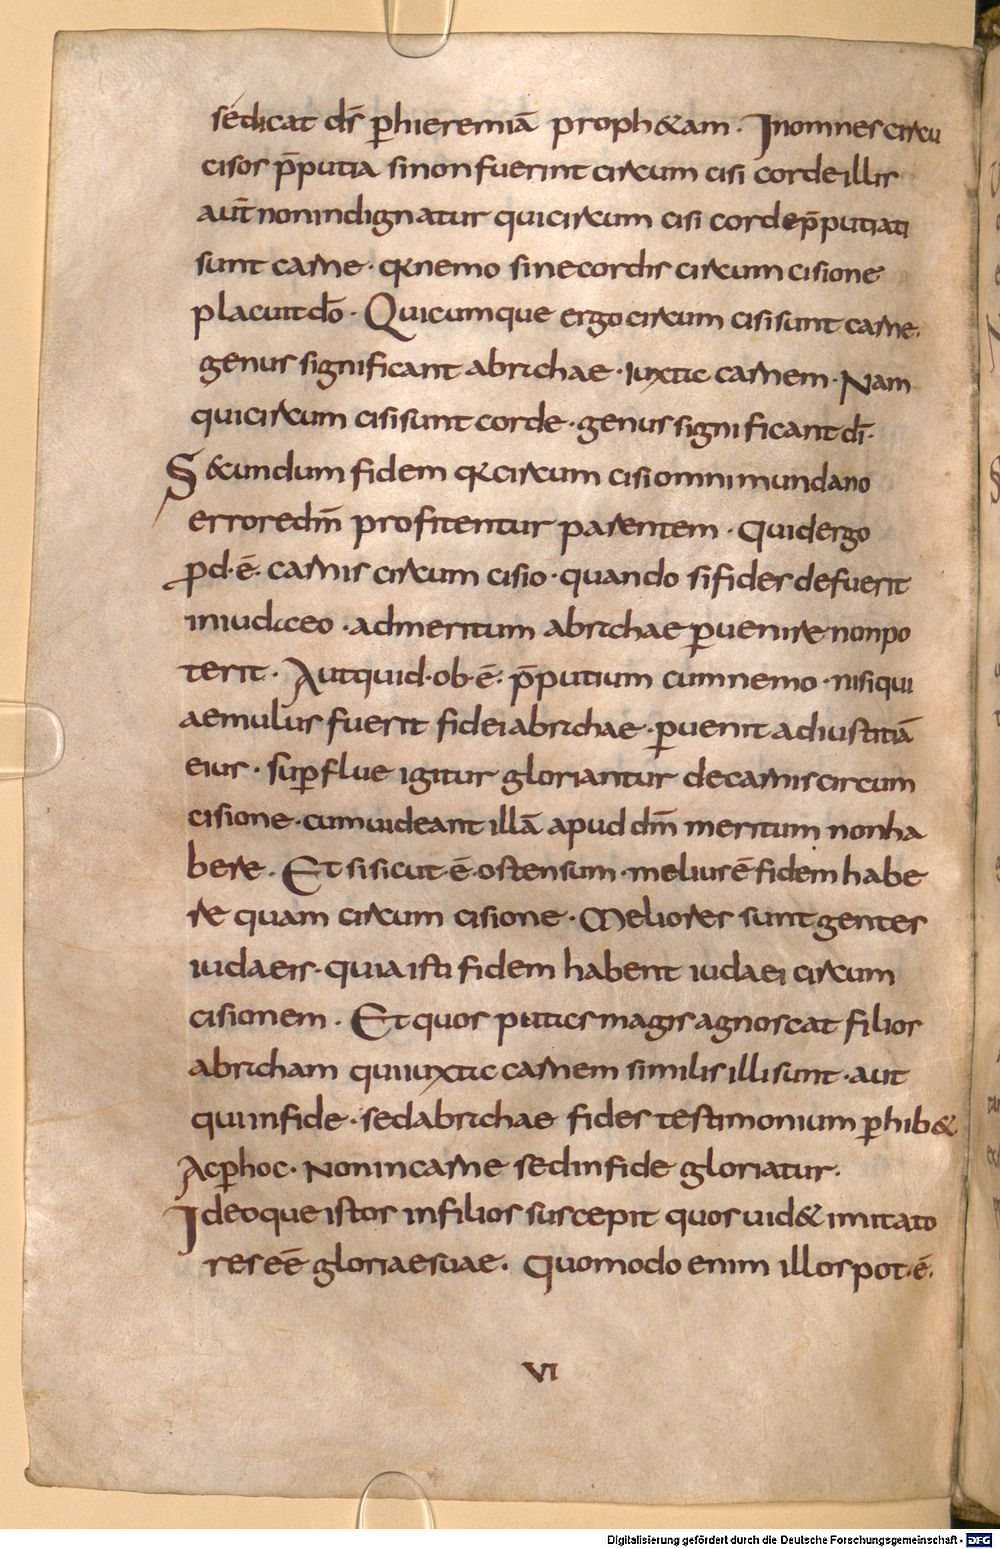 sedicat dn̄s p̲hieremiā proph&am · Inomnes circu
cisos p̄putia sinonfuerint circum cisi cordeillis
aut̄ nonindignatur quicircum cisi cordep̄putiati
sunt carne · qr̄nemo sinecordis circum cisione
placuitdō · Quicumque ergocircum cisisunt carne ·
genus significant abrahae · iuxta carnem · Nam
quicircum cisisunt corde · genus significantdī ·
S&cundum fidem qr̄circum cisiomnimundano
erroredm̄ profitentur parentem · Quidergo
p̲d · ē · carnis circum cisio · quando sifides defuerit
iniudaeo · admeritum abrahae p̲uenirenonpo
terit · Autquid · ob · ē · p̄putium cumnemo · nisiqui
aemulus fuerit fideiabrahae · p̲uenit adiustitiā
eius · sup̲flue igitur gloriantur decarniscircum
cisione · cumuideant illā apud dm̄ meritum nonha
bere · Et sisicut · ē · ostensum · meliusē fidem habe
re quam circum cisione · Meliores sunt gentes
iudaeis · quiaisti fidem habent iudaei circum
cisionem · Et quos putasmagisagnoscat filios
abraham quiiuxta carnem similisillisunt · aut
quiinfide · sedabrahae fides testimonium p̲hib&
Acp̲hoc · Nonincarne sedinfide gloriatur ·
Ideoque istos infilios suscepit quos uid& imitato
reseē gloriaesuae · Quomodo enim illospot · ē ·
VI
Digitalisierung gefördert durch die Deutsche Forschungsgemeinschaft - DFG